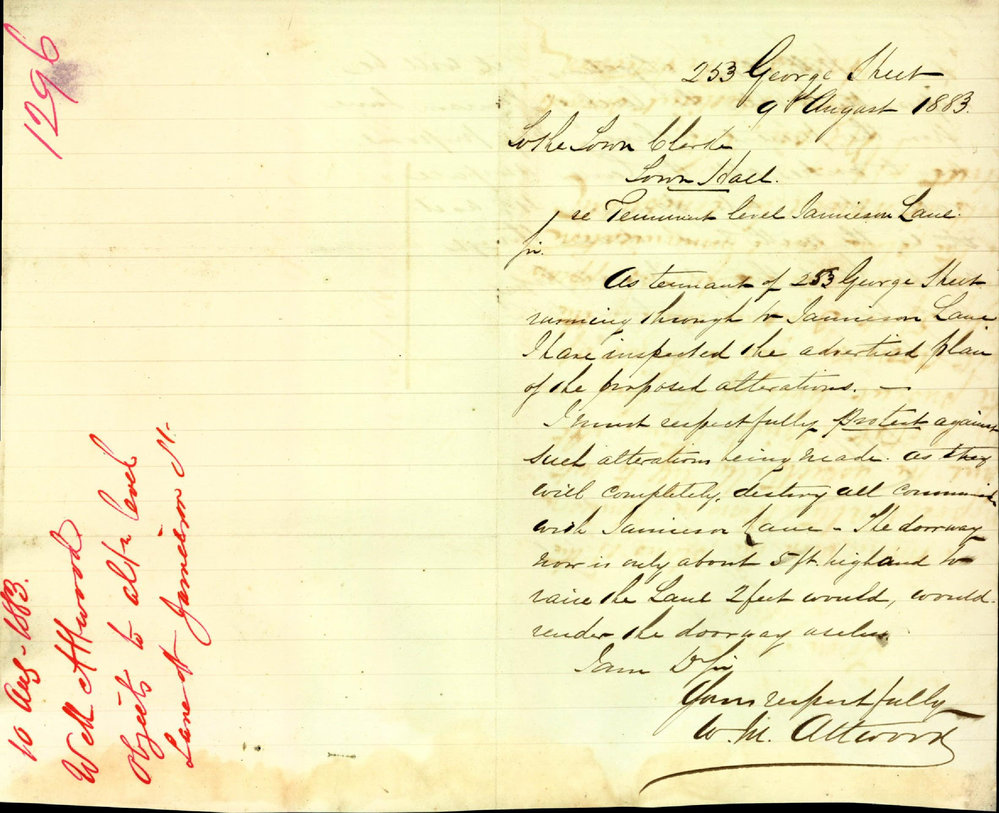 1296
10 Aug - 1883.
W M Attwood
Objects to altn level
Lane at Jamieson St.
253 George Street
9th August 1883.
To the Town Clerk
Town Hall.
re Tennant level Jamieson Lane.
Sir.
As tennant of 253 George Street
running through to Jamieson Lane
I have inspected the advertised plan
of the proposed alterations. —
I must respectfully protest against
such alterations being made. as they
will completely, destroy all communicn
with Jamieson Lane - The doorway
now is only about 5 ft high and to
raise the Lane 2 feet would, would
render the doorway useless.
I am D Sir
Yours respectfully
W. M. Attwood